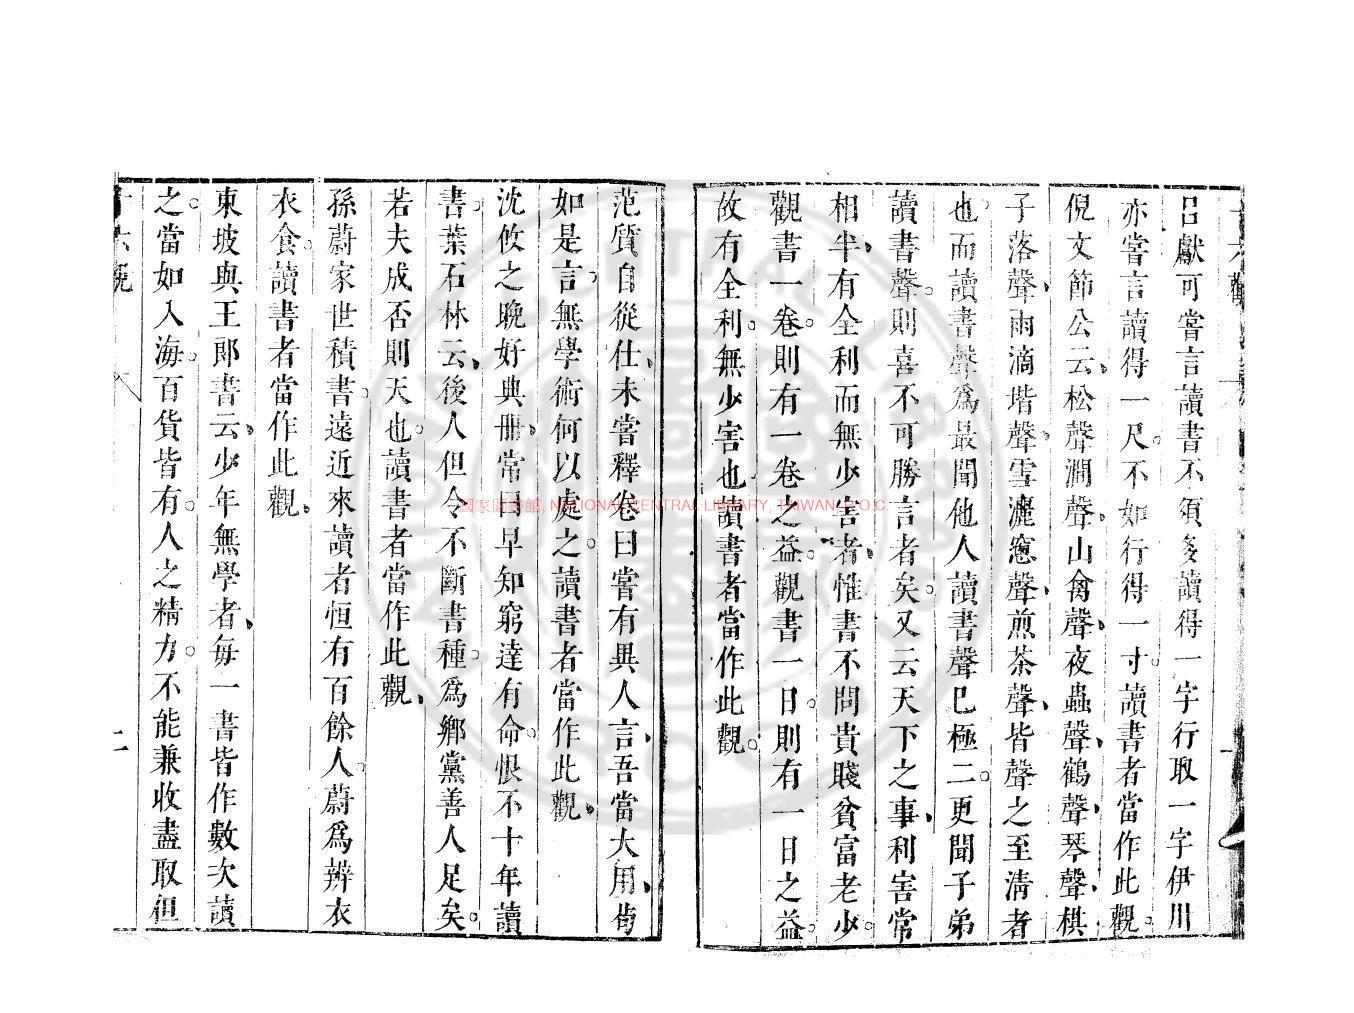 呂獻可嘗言讀書不須多讀得一字行取一字伊川
亦嘗言讀得一尺不如行得一寸讀書者當作此觀
倪文節公云松聲澗聲山禽聲夜蟲聲鶴聲琴聲棋
子落聲雨滴堦聲雪灑窻聲煎茶聲皆聲之至清者
也而讀書聲爲最聞他人讀書聲已極二更聞子弟
讀書聲則喜不可勝言者矣又云天下之事利害常
相半有全利而無少害者惟書不問貴賤貧富老少
觀書一卷則有一卷之益觀書一日則有一日之益
故有全利無少害也讀書者當作此觀
范質自從仕未嘗釋卷曰嘗有異人言吾當大用苟
如是言無學術何以處之讀書者當作此觀
沈攸之晚好典冊常曰早知窮達有命恨不十年讀
書葉石林云後人但令不斷書種爲鄉黨善人足矣
若夫成否則天也讀書者當作此觀
孫蔚家世積書遠近來讀者恒有百餘人蔚爲辨衣
衣食讀書者當作此觀
東坡與王郎書云少年無學者每一書皆作數次讀
之當如入海百貨皆有人之精力不能兼收盡取但
國家圖書館, NATIONAL CENTRAL LIBRARY, TAIWAN, R.O.C.